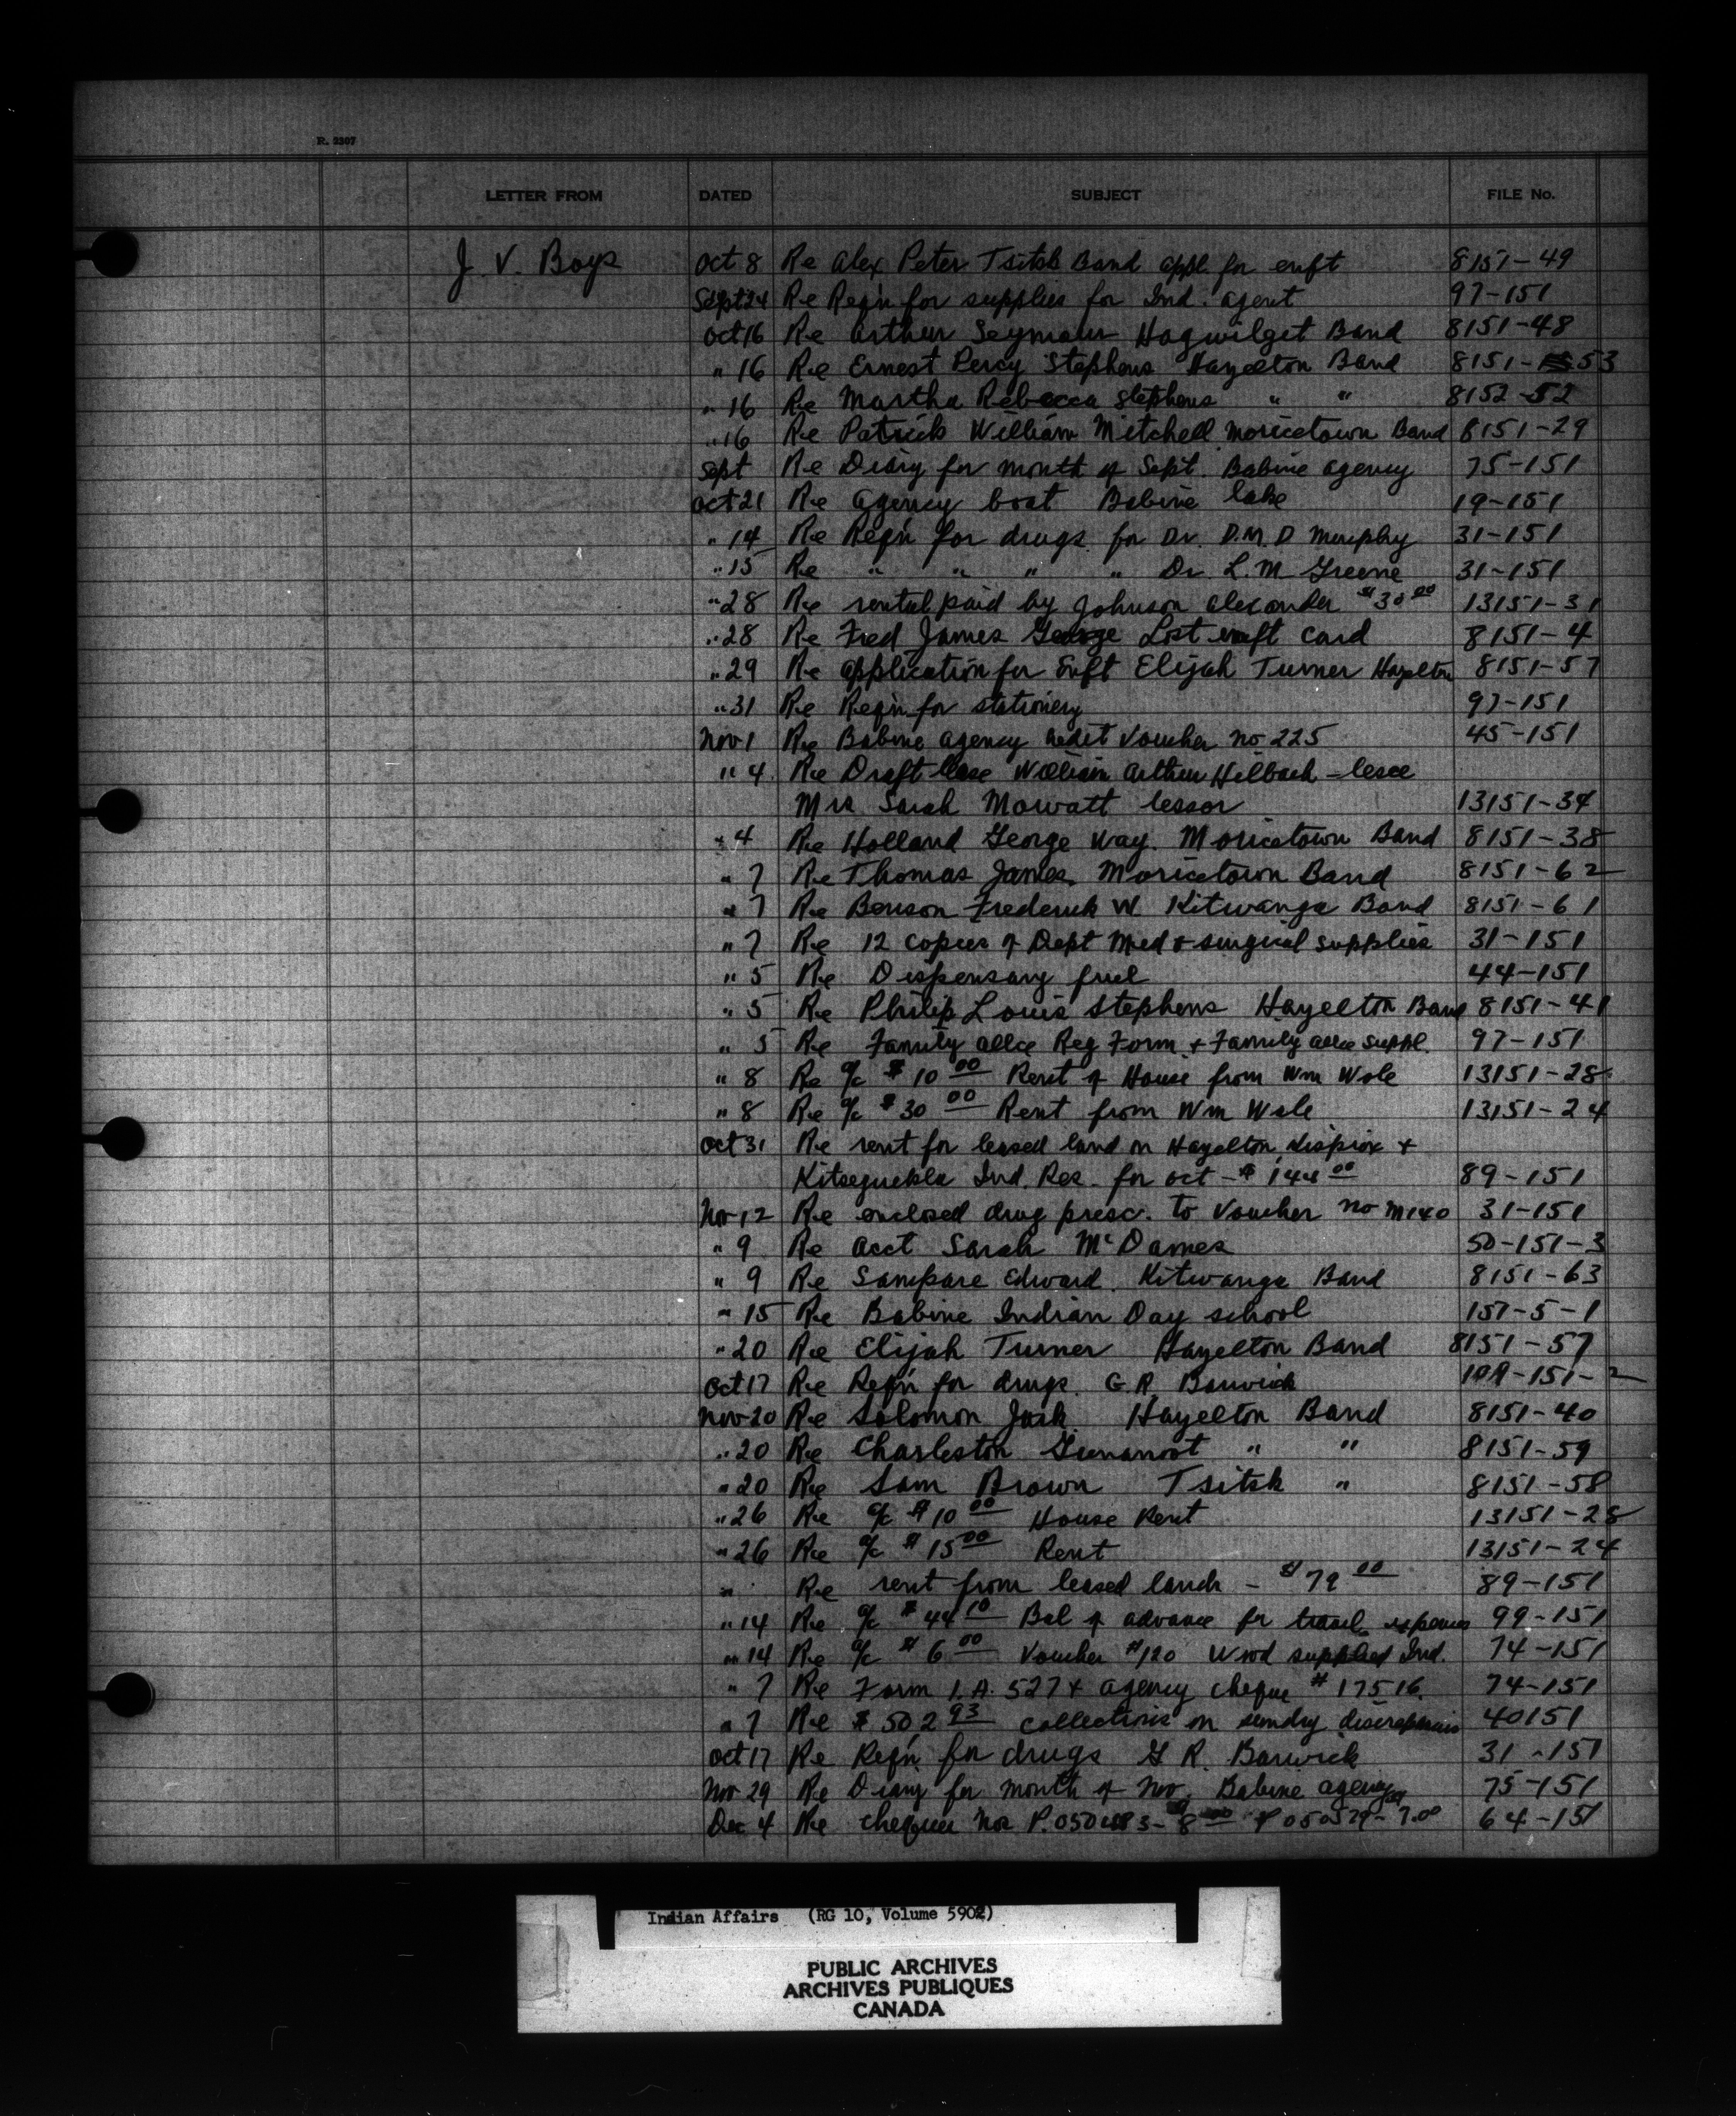 R. 2307
LETTER FROM DATED SUBJECT FILE No.
J. V. Boys Oct 8 Re Alex Peter Tsitsk Band appl. for enft 8151-49
Sept 24 Re Reqn for supplies for Ind. agent 97-151
Oct 16 Re Arthur Seymour Hagwilget Band 8151-48
" 16 Re Ernest Percy Stephens Hazelton Band 8151-53
" 16 Re Martha Rebecca Stephens " " 8152-52
" 16 Re Patrick William Mitchell Moricetown Band 8151-29
Sept Re Diary for month of Sept. Babine agency 75-151
Oct 21 Re agency boat Babine lake 19-151
" 14 Re Reqn for drugs for Dr. D.M.D Murphy 31-151
" 15 Re " " " " Dr. L.M Greene 31-151
" 28 Re rental paid by Johnson Alexander $30 00 13151-31
" 28 Re Fred James George Lost enft card 8151-4
" 29 Re application for Enft Elijah Turner Hazelton 8151-57
" 31 Re Reqn for stationery 97-151
Nov 1 Re Babine agency credit Voucher no 225 45-151
" 4 Re Draft lease William Arthur Helbach - lesee
Mrs Sarah Mowatt lessor 13151-34
" 4 Re Holland George Way. Moricetown Band 8151-38
" 7 Re Thomas James. Moricetown Band 8151-62
" 7 Re Benson Frederick W. Kitwanga Band 8151-61
" 7 Re 12 copies of Dept Med & surgical supplies 31-151
" 5 Re Dispensary fuel 44-151
" 5 Re Philip Louis Stephens Hazelton Band 8151-41
" 5 Re Family allce Reg Form & Family allce suppl. 97-151
" 8 Re a/c $10 00 Rent of House from Wm Wale 13151-28
" 8 Re a/c $30 00 Rent from Wm Wale 13151-24
Oct 31 Re rent for leased land on Hazelton, Kispiox &
Kitseguekla Ind. Res. for Oct - $144 00 89-151
Nov 12 Re enclosed drug presc. to Voucher no M140 31-151
" 9 Re acct Sarah McDames 50-151-3
" 9 Re Sampare Edward. Kitwanga Band 8151-63
" 15 Re Babine Indian Day school 151-5-1
" 20 Re Elijah Turner Hazelton Band 8151-57
Oct 17 Re Reqn for drugs. G.R. Barwick 151-2
Nov 20 Re Solomon Jack Hazelton Band 8151-40
" 20 Re Charleston Gunanoot " " 8151-59
" 20 Re Sam Brown Tsitsk " 8151-58
" 26 Re a/c $10 00 House Rent 13151-28
" 26 Re a/c $15 00 Rent 13151-24
" Re rent from leased lands - $79 00 89-151
" 14 Re a/c $44 10 Bal of advance for travel expenses 99-151
" 14 Re a/c $6 00 Voucher #120 Wood supplied Ind. 74-151
" 7 Re Form I.A. 527 & agency cheque #17516. 74-151
" 7 Re $502 93 collections on sundry 40151
Oct 17 Re Reqn. for drugs G R. Barwick 31-151
Nov 29 Re Diary for month of Nov. Babine agency 75-151
Dec 4 Re cheques Nos 64-151
Indian Affairs (RG 10, Volume 5902)
PUBLIC ARCHIVES
ARCHIVES PUBLIQUES
CANADA